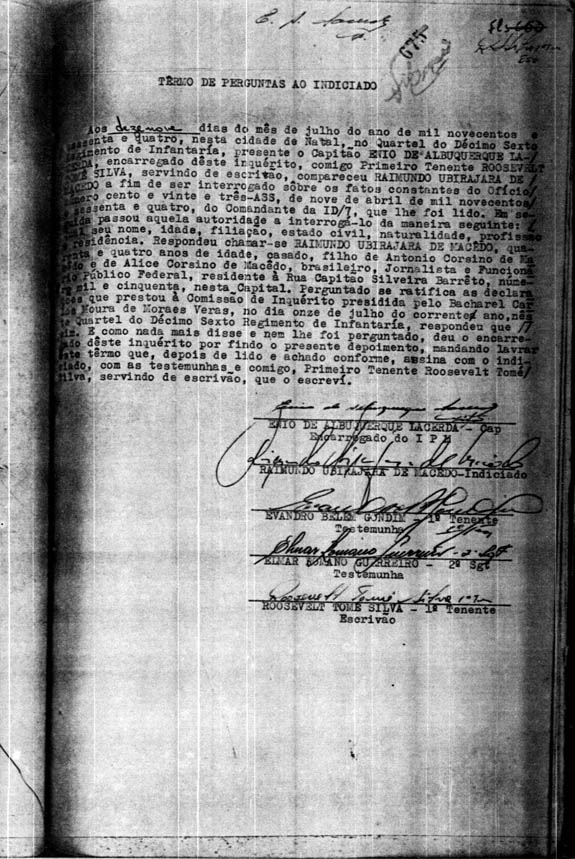 675
TÊRMO DE PERGUNTAS AO INDICIADO
Aos dezenove dias do mês de julho do ano de mil novecentos e
ssenta e quatro, nesta cidade de Natal, no Quartel do Décimo Sexto
egimento de Infantaria, presente o Capitão ENIO DE ALBUQUERQUE LA-/
ERDA, encarregado dêste inquérito, comigo Primeiro Tenente ROOSEVELT
OMÉ SILVA, servindo de escrivão, compareceu RAIMUNDO UBIRAJARA DE /
ACEDO a fim de ser interrogado sôbre os fatos constantes do Ofício/
úmero cento e vinte e três-ASS, de nove de abril de mil novecentos/
essenta e quatro, do Comandante da ID/7, que lhe foi lido. Em se-
ida passou aquela autoridade a interrogá-lo da maneira seguinte: /
al seu nome, idade, filiação, estado civil, naturalidade, profissão
residência. Respondeu chamar-se RAIMUNDO UBIRAJARA DE MACÊDO, qua-
enta e quatro anos de idade, casado, filho de Antonio Corsino de Ma
êdo e de Alice Corsino de Macêdo, brasileiro, Jornalista e Funcioná
io Público Federal, residente à Rua Capitão Silveira Barrêto, núme-
ro cento e cinquenta, nesta Capital. Perguntado se ratifica as declara
ões que prestou à Comissão de Inquérito presidida pelo Bacharel Car
os Moura de Moraes Veras, no dia onze de julho do corrente ano, nês
te Quartel do Décimo Sexto Regimento de Infantaria, respondeu que /
sim. E como nada mais disse e nem lhe foi perguntado, deu o encarre-
ado dêste inquérito por findo o presente depoimento, mandando lavrar
ste têrmo que, depois de lido e achado conforme, assina com o indi-
iado, com as testemunhas e comigo, Primeiro Tenente Roosevelt Tomé/
Silva, servindo de escrivão, que o escreví.
Enio de Albuquerque Lacerda
ENIO DE ALBUQUERQUE LACERDA - Cap
Encarregado do I P M
RAIMUNDO UBIRAJARA DE MACEDO-Indiciado
EVANDRO BELÉM GONDIM - 1º Tenente
Testemunha
Elmar Romano Guerreiro - 2º Sgt
ELMAR ROMANO GUERREIRO - 2º Sgt
Testemunha
Roosevelt Tomé Silva 1º Ten
ROOSEVELT TOMÉ SILVA - 1º Tenente
Escrivão